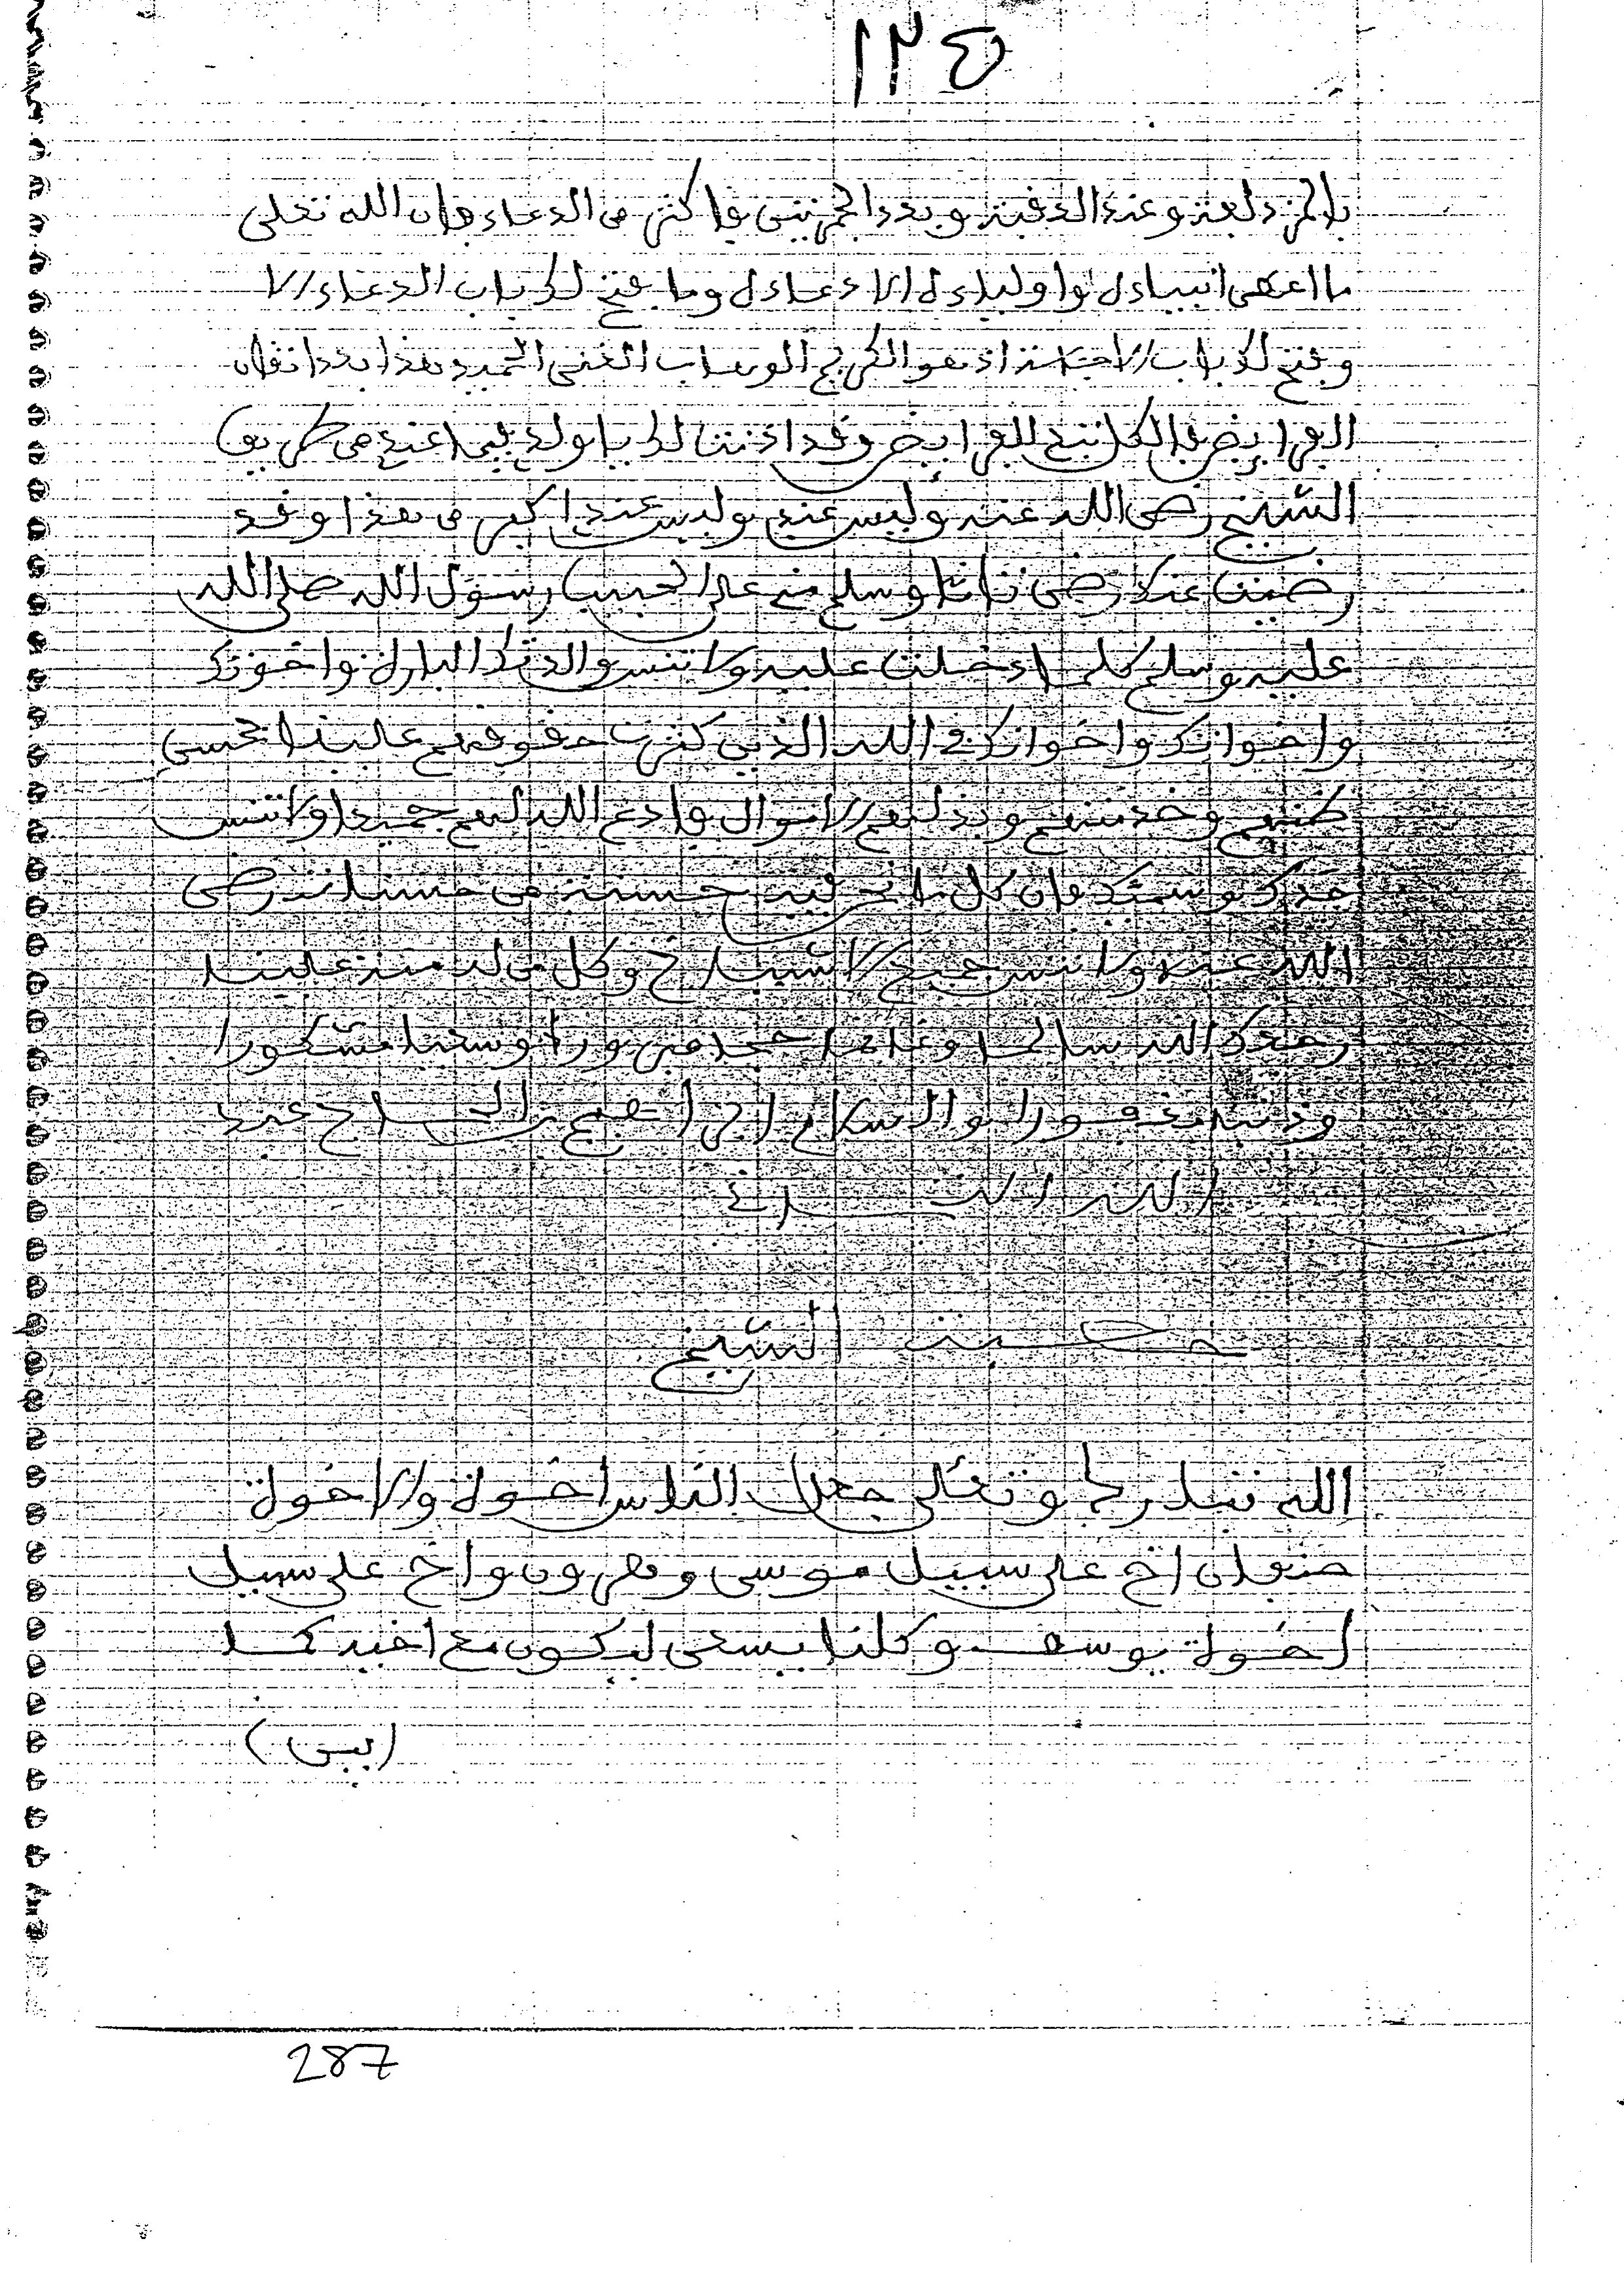 ١٣٤
بالمزدلفة وعند الوقبة وبعد الجمرتين واكثر من الدعاء فان الله تعلى
ما اعطى انبياءه واولياءه الا دعاءه وما فتح لك باب الدعاء الا
وفتح لك باب الاجابة اذ هو الكريم الوهاب الغني الحميد هذا بعد اتقان
الفرايض فالكل تبع للفرايض وقد اذنت لك يا ولد في اعند من طريق
الشيخ رضي الله عنه وليس عندي وليس عند اكبر من هذا وقد
رضيت عنك رضى تاما وسلم مني على الحبيب رسول الله صلى الله
عليه وسلم كلما دخلت عليه ولا تنس والدتك البارة واخوتك
واخواتك واخوانك في الله الذين كثرت حقوقهم علينا بحسن
ظنهم وخدمتهم وبذلهم الاموال فادع الله لهم جميعا ولا تنس
جدك وسيدك فان كل ما نحن فيه حسنة من حسناته رضي
الله عنه ولا تنس جميع الاشياخ وكل من له منة علينا
ردك الله سالما وغانما حجا مبرورا وسعيا مشكورا
وذنبا مغفورا والسلام ابن الحاج عبد
الله
محبت الشيخ
الله تبارك وتعالى جعل الناس اخوة والاخوة
صنفان اخ على سبيل موسى وهرون واخ على سبيل
اخوة يوسف وكلنا يسعى ليكون مع اخيه كما
(بين)
287